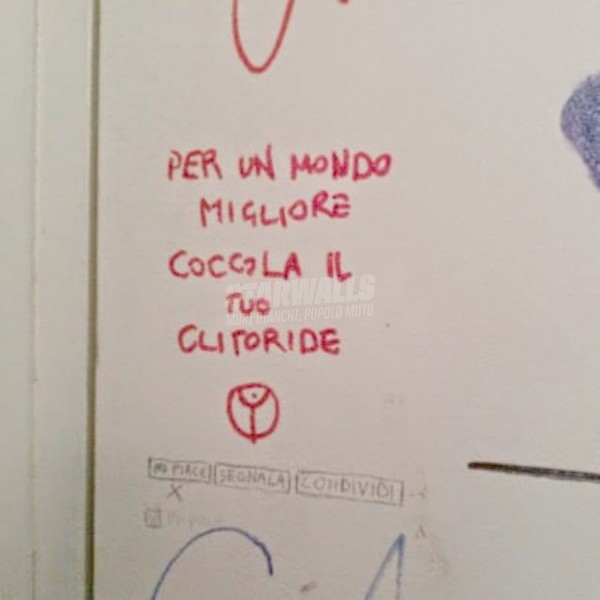 PER UN MONDO
MIGLIORE
COCCOLA IL
TUO
CLITORIDE
#STARWALLS
MURI BIANCHI, POPOLO MUTO
MI PIACE SEGNALA CONDIVIDI
X